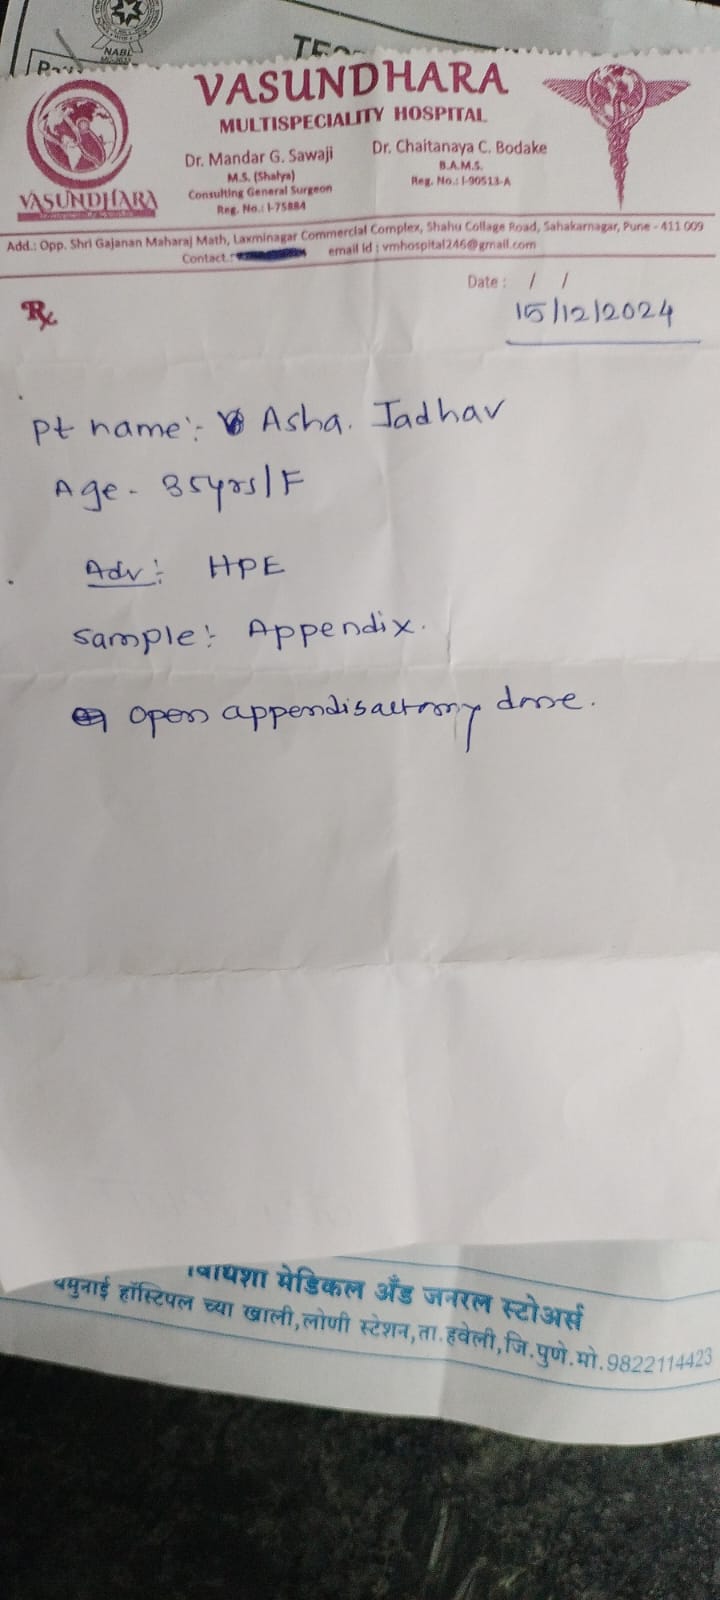 NABL
VASUNDHARA
MULTISPECIALITY HOSPITAL
Dr. Mandar G. Sawaji
M.S. (Shalya)
Consulting General Surgeon
Reg. No.: I-75884
Dr. Chaitanaya C. Bodake
B.A.M.S.
Reg. No.: I-90513-A
VASUNDHARA
Add.: Opp. Shri Gajanan Maharaj Math, Laxminagar Commercial Complex, Shahu Collage Road, Sahakarnagar, Pune - 411 009
Contact.: email id : vmhospital246@gmail.com
Date : / /
15/12/2024
Rx
Pt name:- Asha. Jadhav
Age - 35yrs/F
Adv:- HPE
Sample:- Appendix.
open appendisactomy done.
मेडिकल अँड जनरल स्टोअर्स
यमुनाई हॉस्पिटल च्या खाली,लोणी स्टेशन,ता.हवेली,जि.पुणे.मो.9822114423